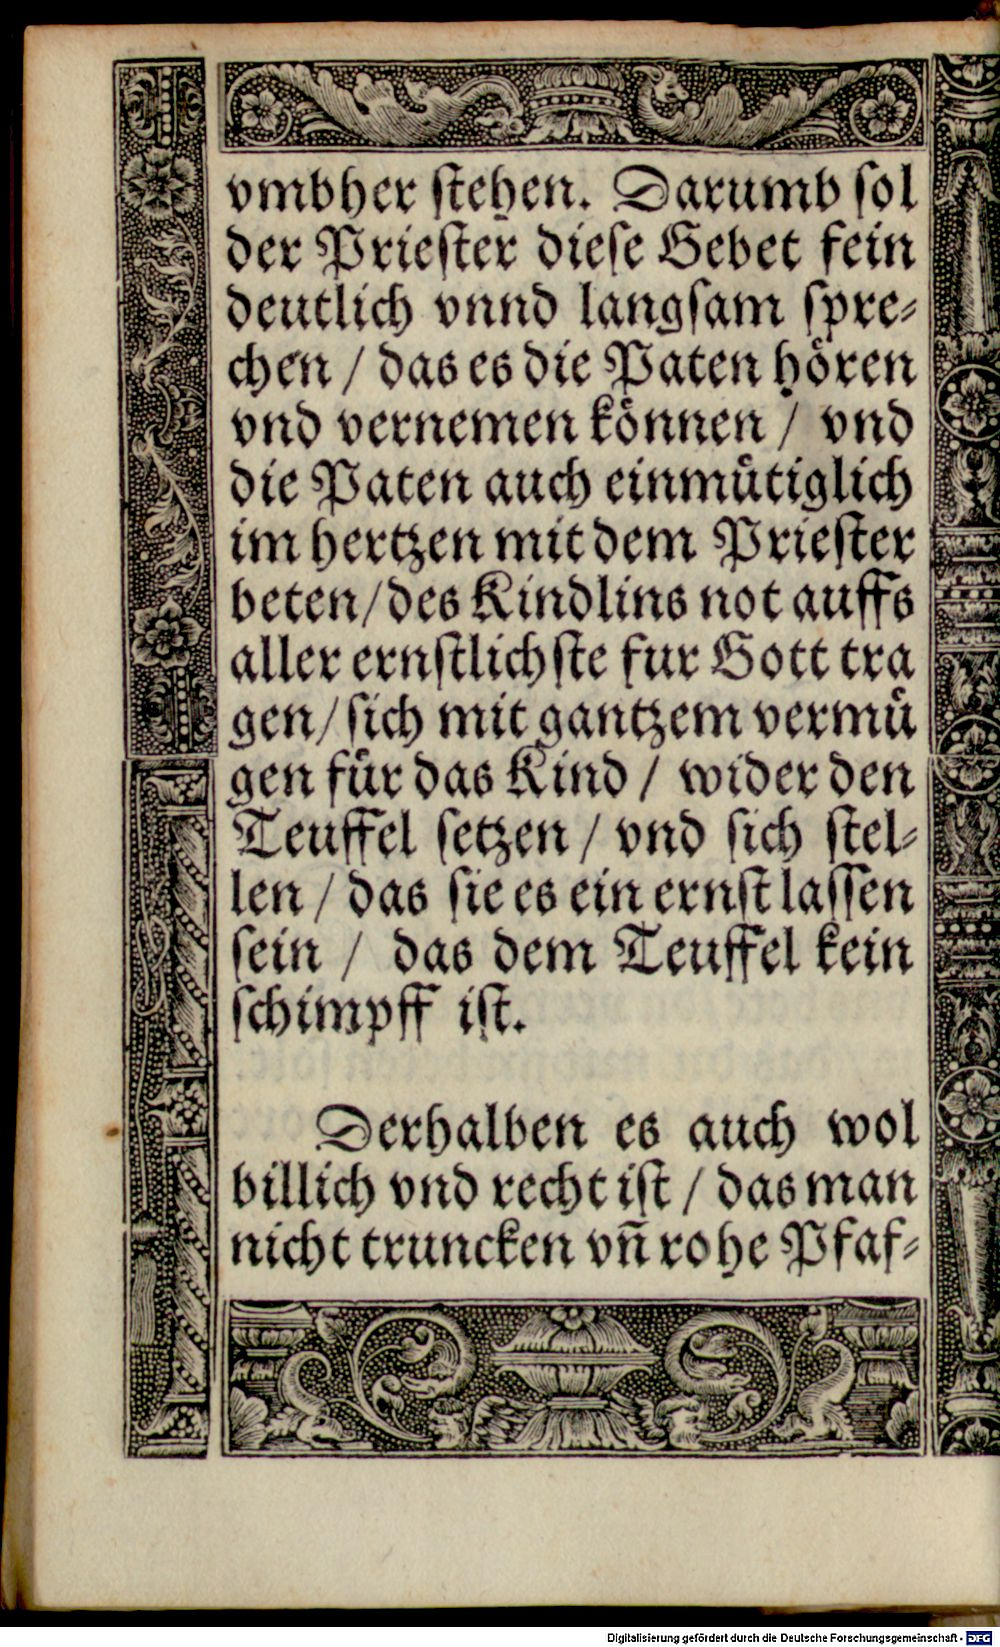 vmbher ſtehen. Darumb ſol
der Prieſter dieſe Gebet fein
deutlich vnnd langſam ſpre⸗
chen / das es die Paten hoͤren
vnd vernemen koͤnnen / vnd
die Paten auch einmuͤtiglich
im hertzen mit dem Prieſter
beten / des Kindlins not auffs
aller ernſtlichſte fur Gott tra
gen / ſich mit gantzem vermuͤ
gen fuͤr das Kind / wider den
Teuffel ſetzen / vnd ſich ſtel⸗
len / das ſie es ein ernſt laſſen
ſein / das dem Teuffel kein
ſchimpff iſt.
Derhalben es auch wol
billich vnd recht iſt / das man
nicht truncken vñ rohe Pfaf⸗
Digitalisierung gefördert durch die Deutsche Forschungsgemeinschaft - DFG